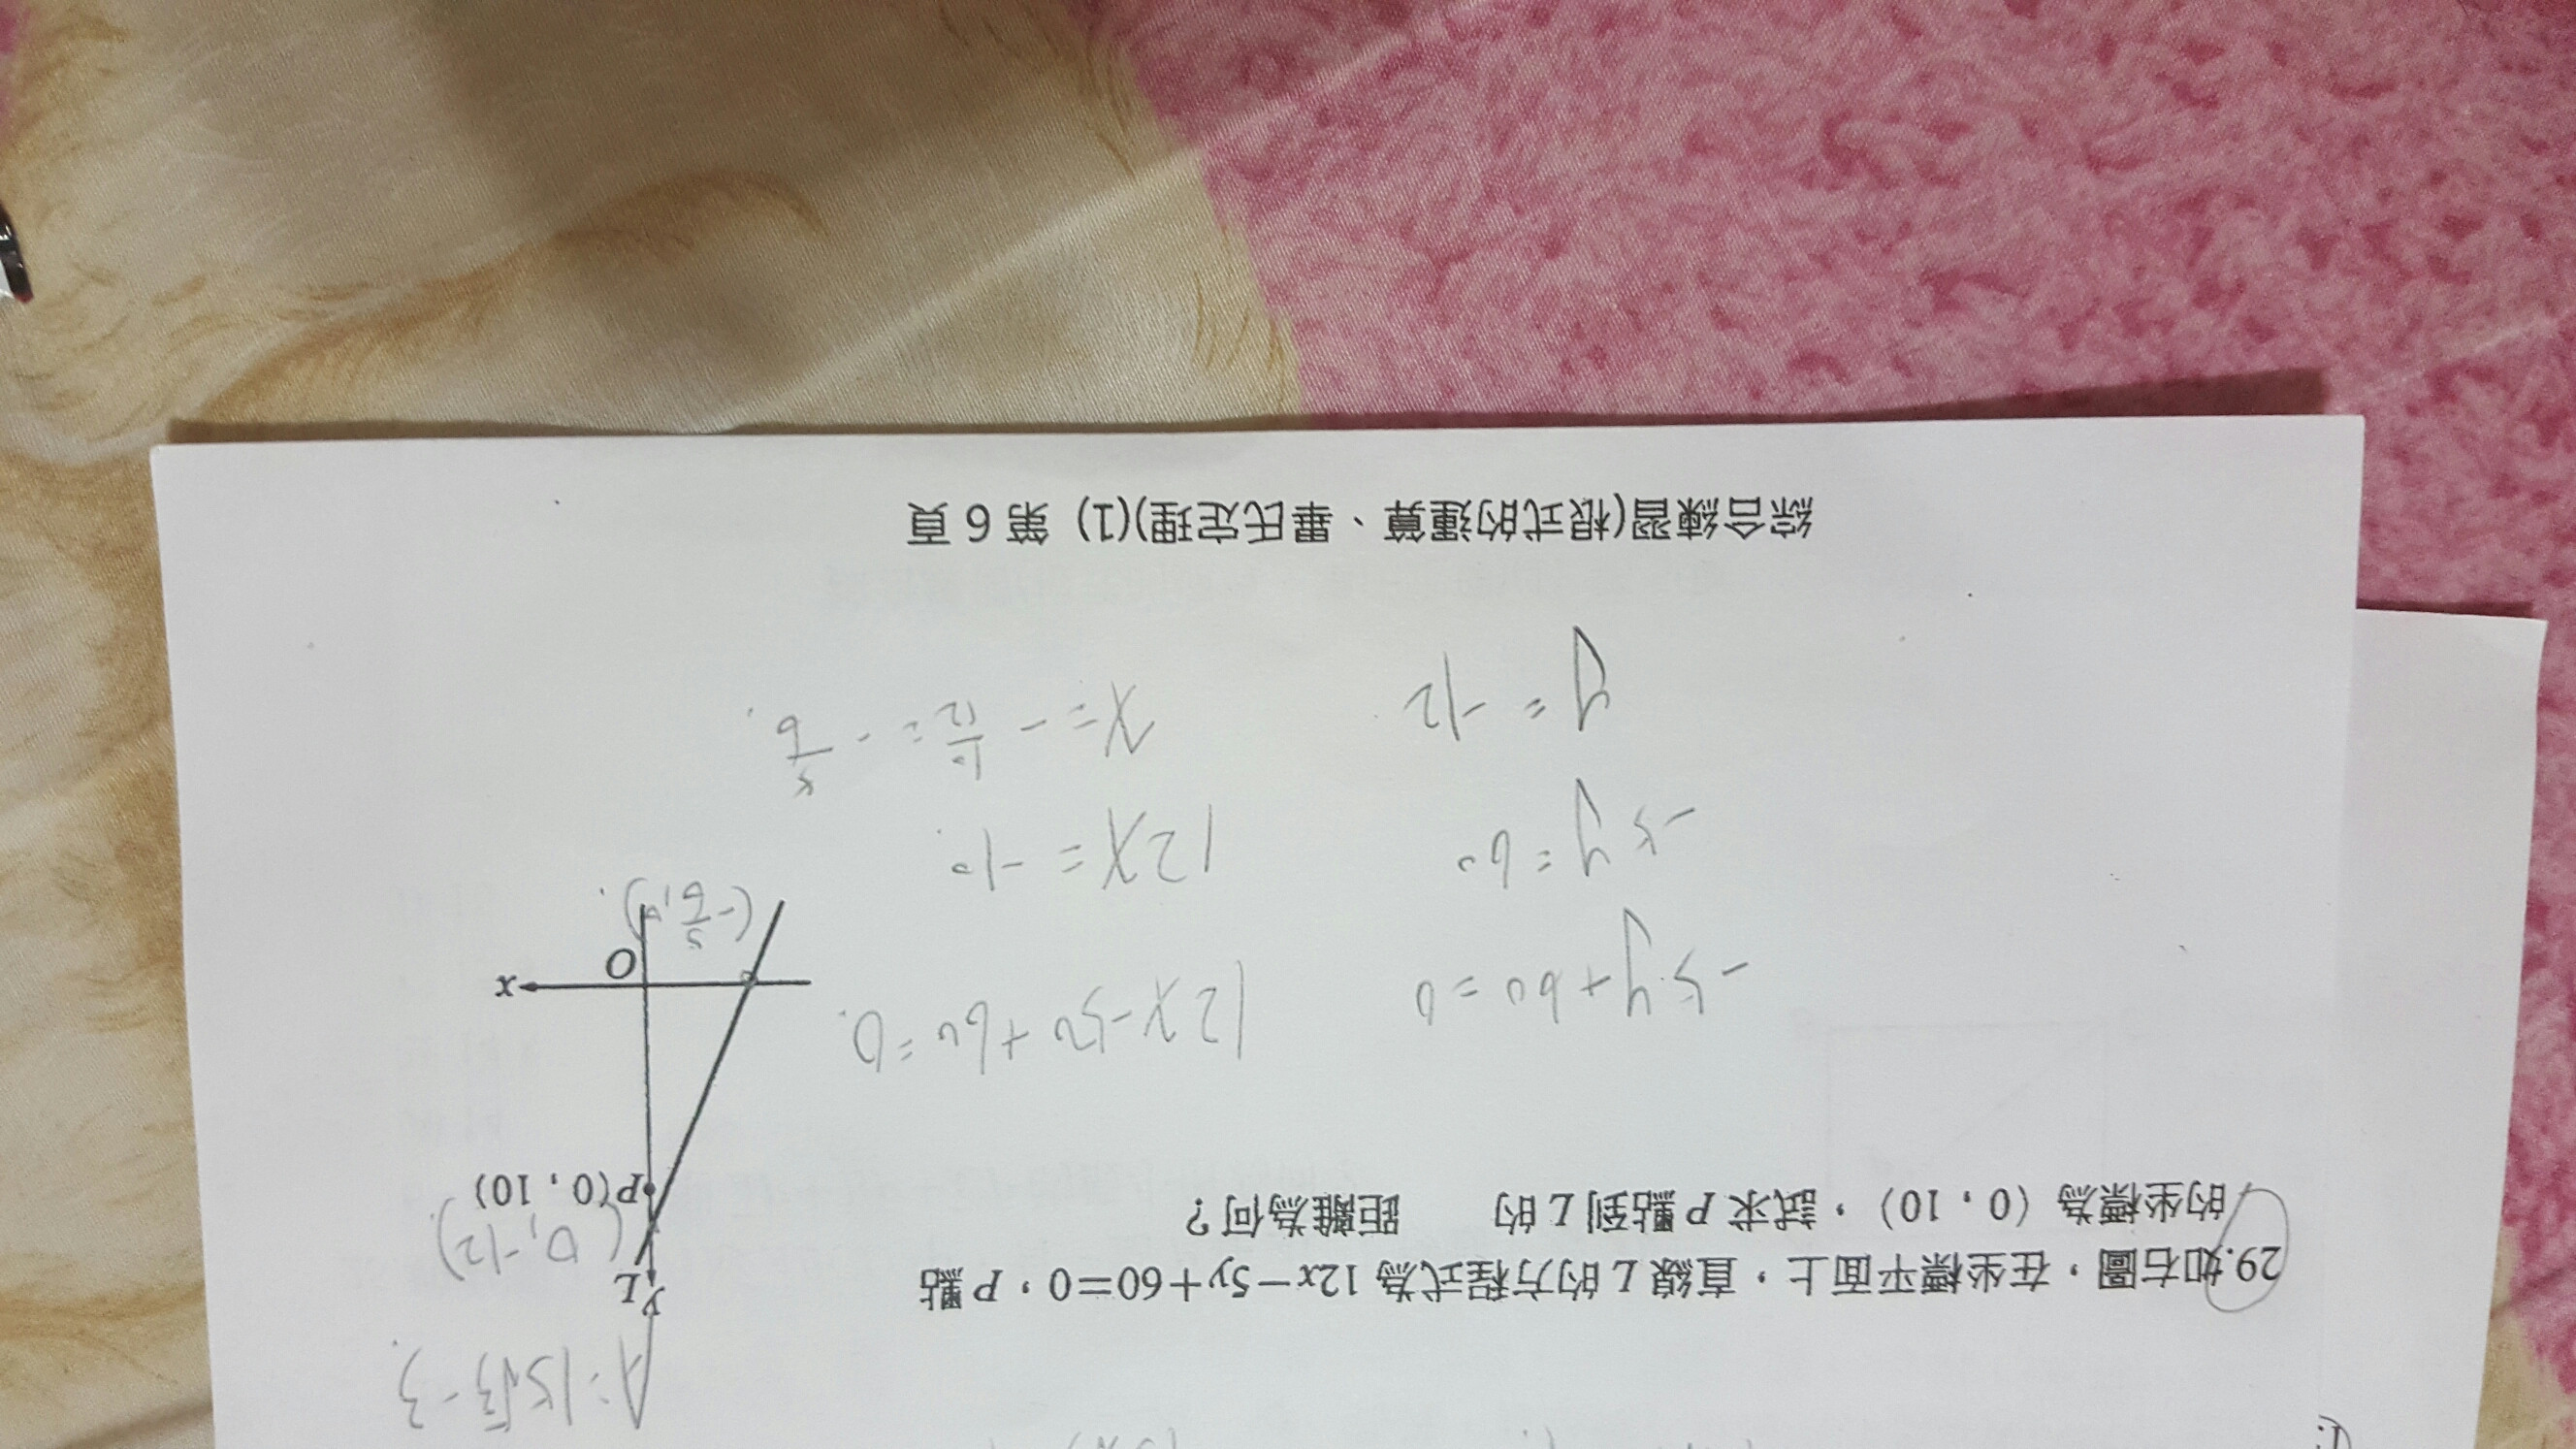 A=15√3-3
29.如右圖，在坐標平面上，直線 L 的方程式為 12x－5y＋60＝0，P 點
的坐標為（0，10），試求 P 點到 L 的 距離為何？
y L
(0,-12)
P(0，10)
x
O
(-5/6,0)
-5y+60=0
-5y=60
y=-12
12x-50+60=0
12x=-10
x=-10/12=-5/6
綜合練習(根式的運算、畢氏定理)(1) 第 6 頁